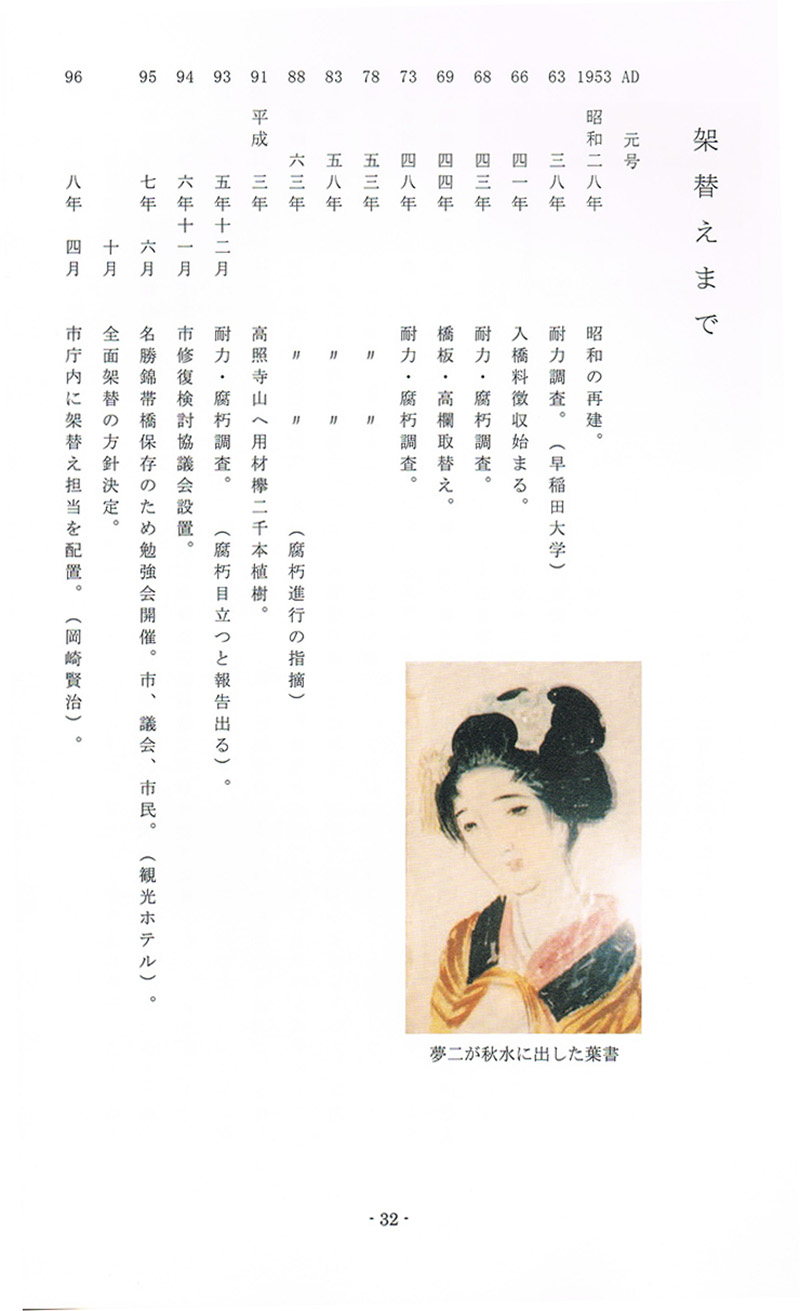 架替えまで
AD 元号
1953 昭和二八年 昭和の再建。
63 三八年 耐力調査。(早稲田大学)
66 四一年 入橋料徴収始まる。
68 四三年 耐力・腐朽調査。
69 四四年 橋板・高欄取替え。
73 四八年 耐力・腐朽調査。
78 五三年 〃 〃
83 五八年 〃 〃
88 六三年 〃 〃 (腐朽進行の指摘)
91 平成 三年 高照寺山へ用材欅二千本植樹。
93 五年十二月 耐力・腐朽調査。 (腐朽目立つと報告出る)。
94 六年十一月 市修復検討協議会設置。
95 七年 六月 名勝錦帯橋保存のため勉強会開催。市、議会、市民。(観光ホテル)。
十月 全面架替の方針決定。
96 八年 四月 市庁内に架替え担当を配置。(岡崎賢治)。
夢二が秋水に出した葉書
- 32 -